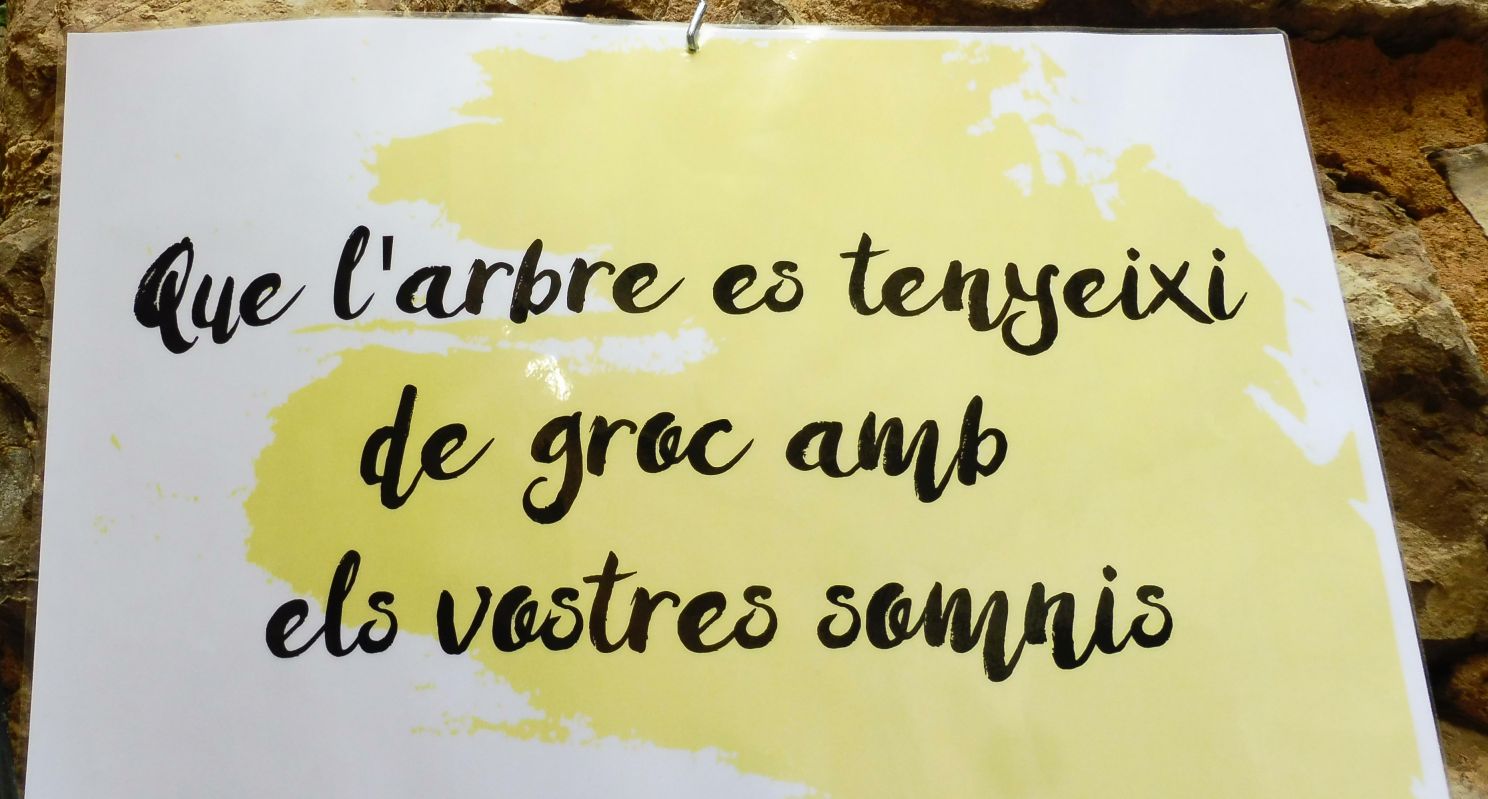 Que l'arbre es tenyeixi
de groc amb
els vostres somnis